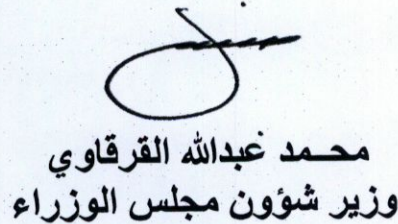 محمد عبدالله القرقاوي
وزير شؤون مجلس الوزراء